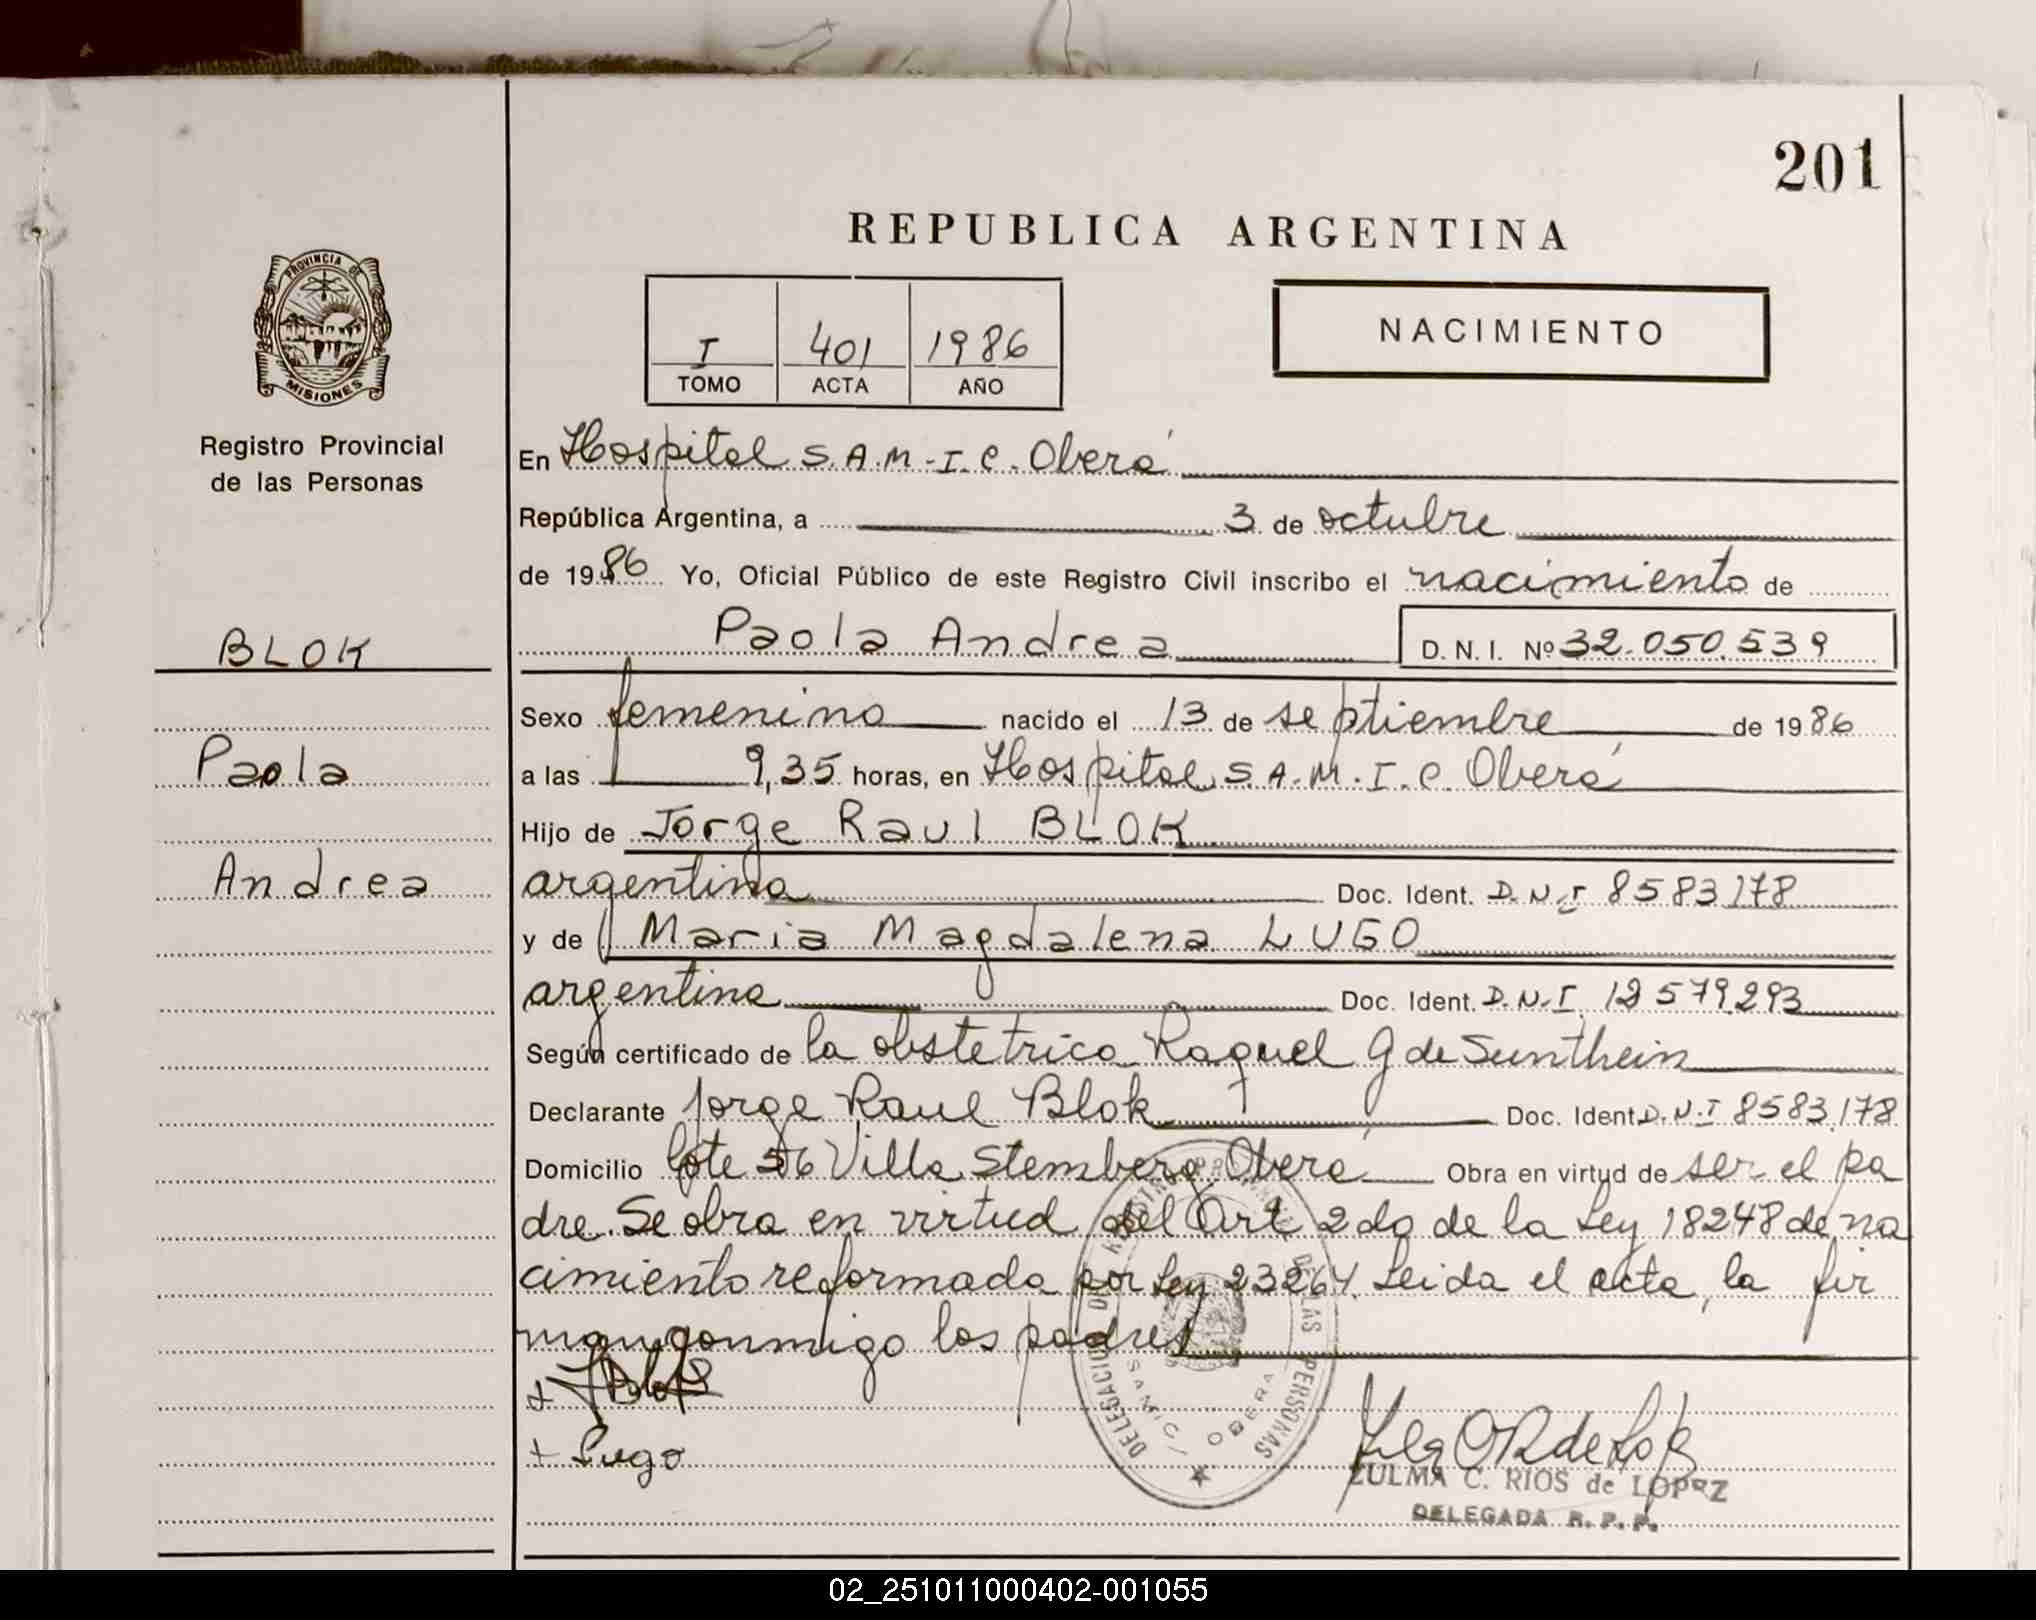 201
REPUBLICA ARGENTINA
PROVINCIA DE
MISIONES
Registro Provincial
de las Personas
I 401 1986
TOMO ACTA AÑO
NACIMIENTO
BLOK
Paola
Andrea
En Hospital S.A.M.I.C. Oberá
República Argentina, a 3 de octubre
de 1986 Yo, Oficial Público de este Registro Civil inscribo el nacimiento de
Paola Andrea D. N. I. Nº 32.050.539
Sexo femenino nacido el 13 de septiembre de 1986
a las 9,35 horas, en Hospital S.A.M.I.C. Oberá
Hijo de Jorge Raul BLOK
argentino Doc. Ident. D.N.I 8583178
y de Maria Magdalena LUGO
argentina Doc. Ident. D.N.I. 12579293
Según certificado de la obstetrica Raquel G de
Declarante Jorge Raul Blok Doc. Ident. D.N.I 8583178
Domicilio lote 56 Villa Stemberg Oberá Obra en virtud de ser el pa
dre. Se obra en virtud del Art 2do de la Ley 18248 de na
cimiento reformada por Ley 23264. Leida el acta, la fir
man conmigo los padres
Blok
+ Lugo
DELEGACION DEL REGISTRO PROVINCIAL DE LAS PERSONAS
SAMIC / OBERA
ZULMA C. RIOS de LOPEZ
DELEGADA R. P. P.
02_251011000402-001055